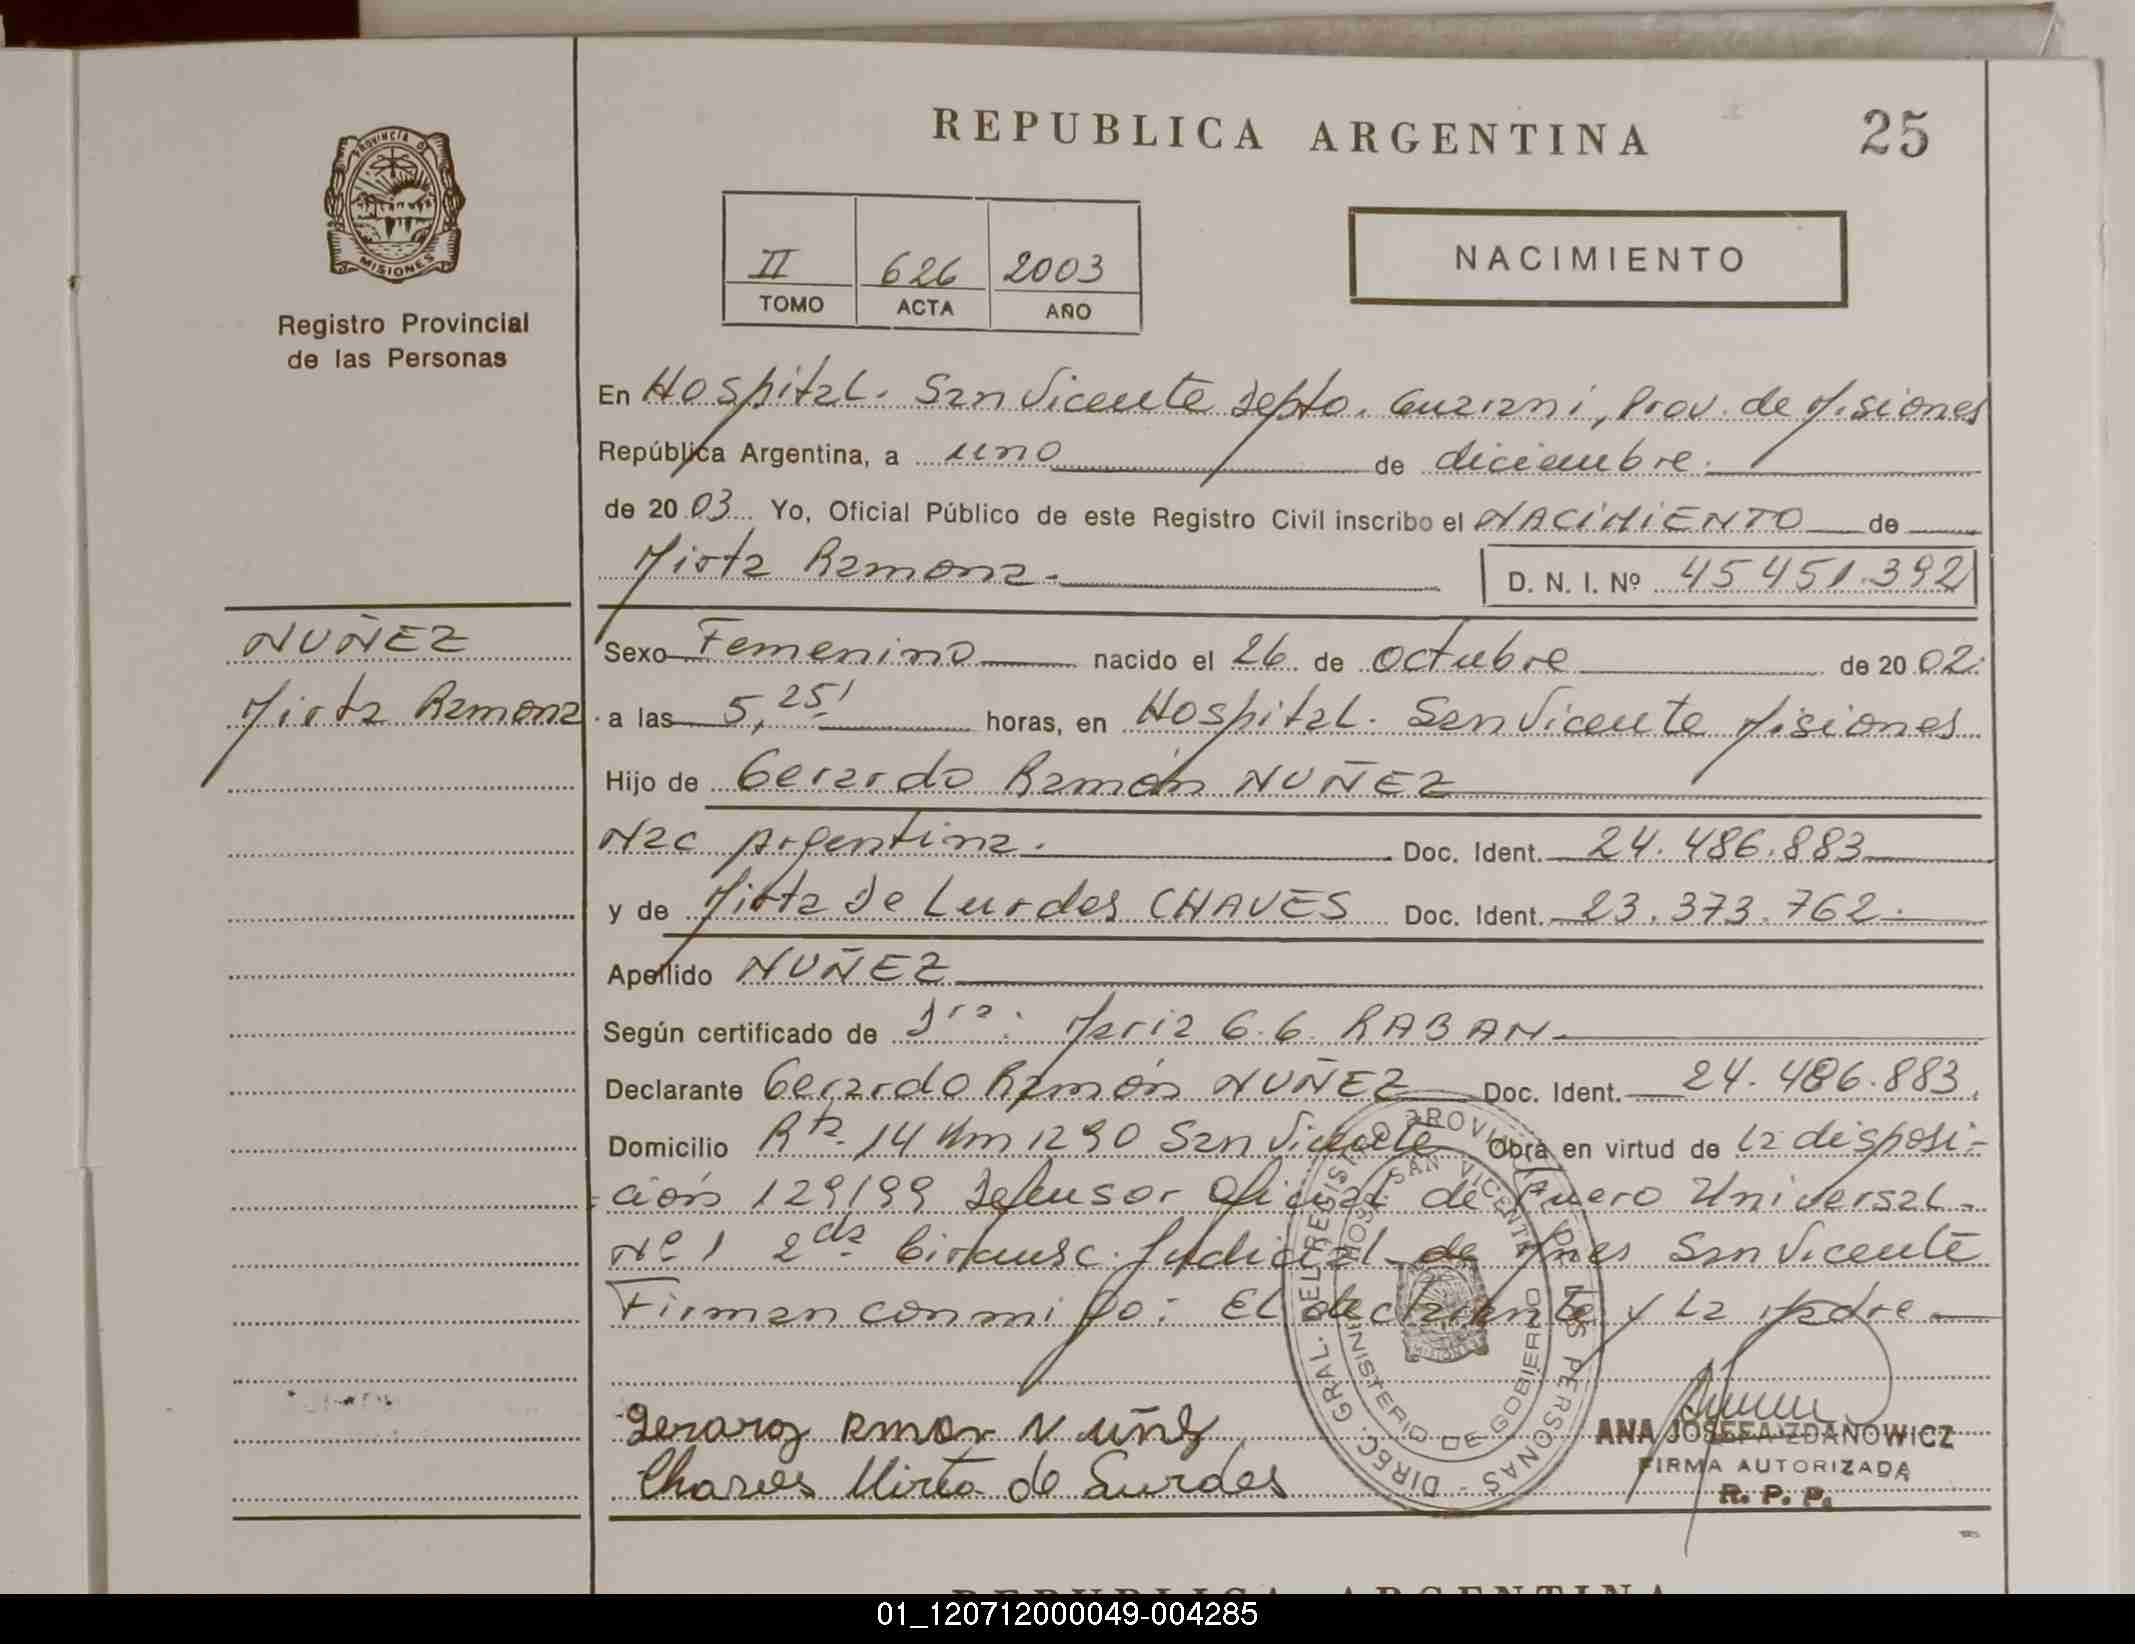 REPUBLICA ARGENTINA 25
PROVINCIA DE
MISIONES
Registro Provincial
de las Personas
II 626 2003
TOMO ACTA AÑO
NACIMIENTO
En Hospital. San Vicente Depto. Guarani, Prov. de Misiones
República Argentina, a uno de diciembre.
de 2003 Yo, Oficial Público de este Registro Civil inscribo el NACIMIENTO de
Mirta Ramona.
D. N. I. Nº 45451.392
NUÑEZ
Mirta Ramona
Sexo Femenino nacido el 26 de octubre de 2002.
a las 5,25' horas, en Hospital. San Vicente Misiones
Hijo de Gerardo Ramón NUÑEZ
Nac Argentina. Doc. Ident. 24.486.883
y de Mirta De Lurdes CHAVES Doc. Ident. 23.373.762.
Apellido NUÑEZ
Según certificado de Dra: Maria G.G. RABAN.
Declarante Gerardo Ramón NUÑEZ Doc. Ident. 24.486.883
Domicilio Rta. 14 Km 1290 San Vicente Obra en virtud de la disposi-
ción 129/99 Defensor Oficial de Fuero Universal-
Nº 1 2da Circunsc. Judicial de Mnes San Vicente
Firman conmigo: El declarante y La Madre
Chaves Mirta de Lurdes
DIREC. GRAL. DEL REGISTRO PROVINCIAL DE LAS PERSONAS
HOSP. SAN VICENTE
MINISTERIO DE GOBIERNO
MISIONES
ANA JOSEFA ZDANOWICZ
FIRMA AUTORIZADA
R. P. P.
REPUBLICA ARGENTINA
01_120712000049-004285